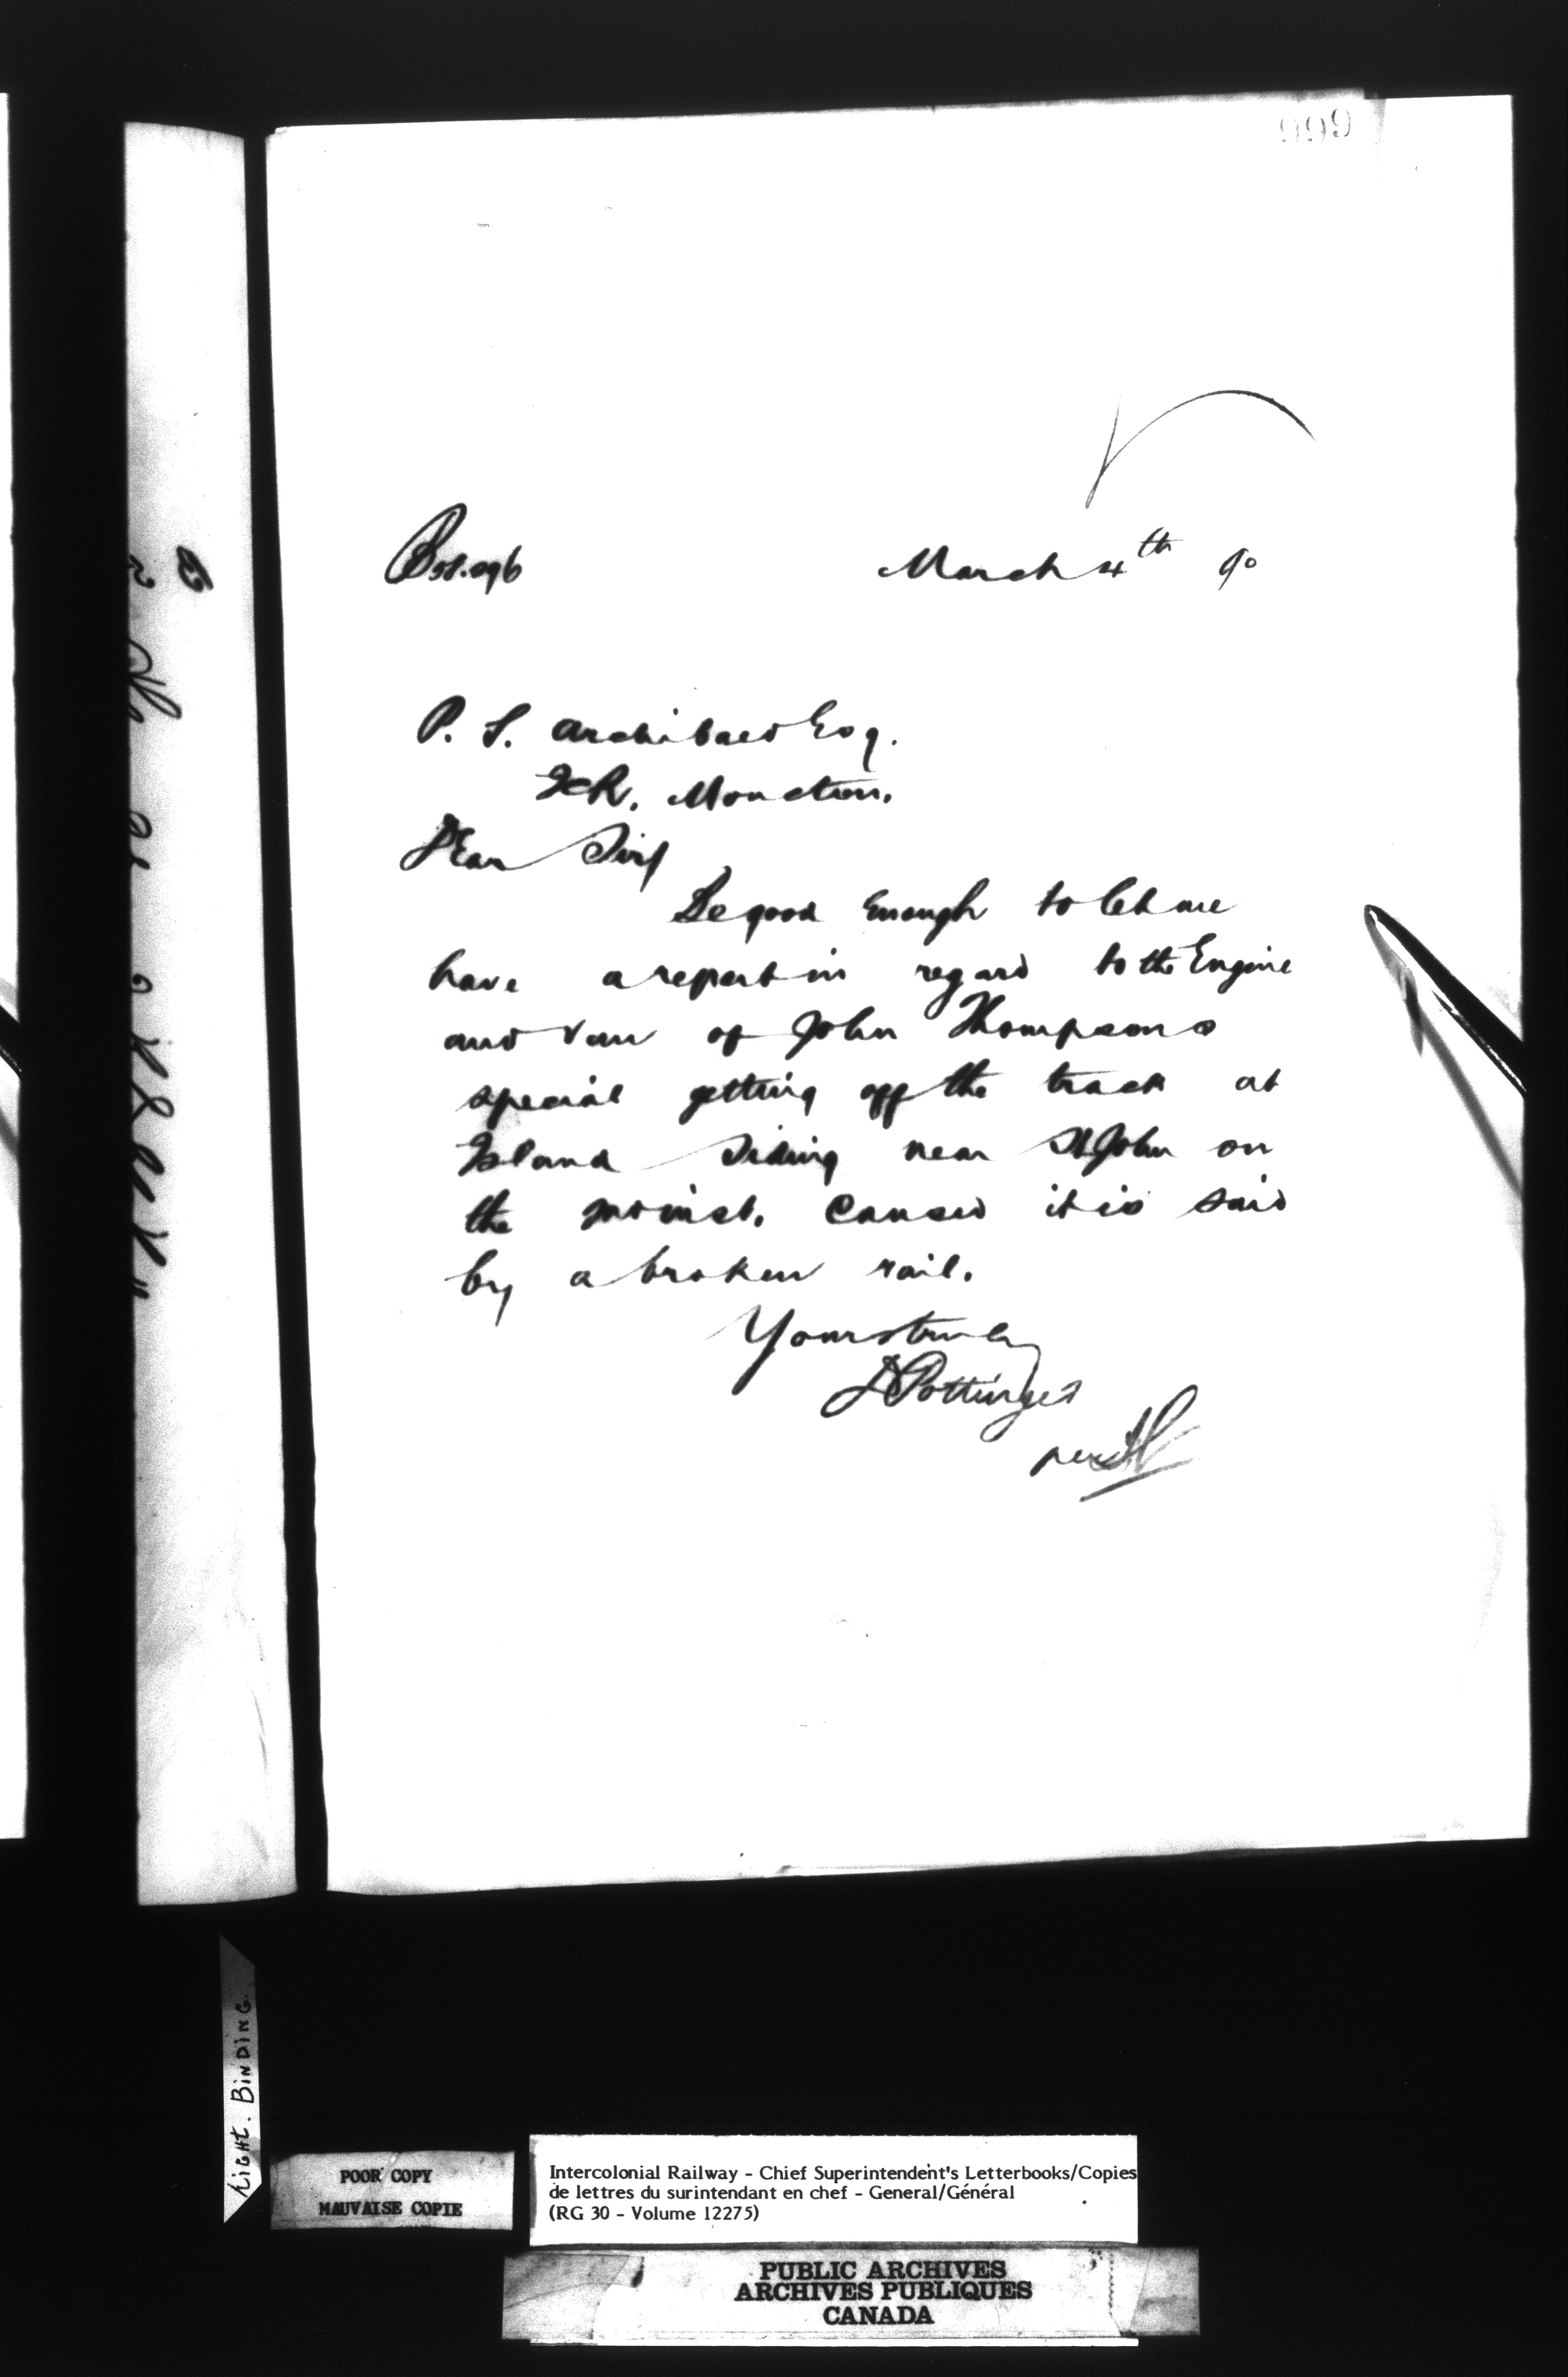 March 4th 90
P. S. Archibald Esq.
ICR. Moncton.
Dear Sir/
Be good enough to let me
have a report in regard to the Engine
and van of John Thompsons
special getting off the track at
Island Siding near St John on
the inst. caused it is said
by a broken rail.
Yours truly
D Pottinger
per
LIGHT. BINDING.
POOR COPY
MAUVAISE COPIE
Intercolonial Railway - Chief Superintendent's Letterbooks/Copies
de lettres du surintendant en chef - General/Général
(RG 30 - Volume 12275)
PUBLIC ARCHIVES
ARCHIVES PUBLIQUES
CANADA